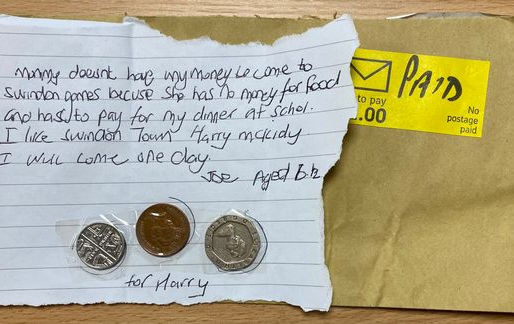 mommy doesnt have any money to come to
swindon games becuse she has no money for food
and has to pay for my dinner at schol.
I like swindon Town Harry mckidy
I will come one day.
Joe Aged 6½
for Harry
to pay
.00
PAID
No
postage
paid